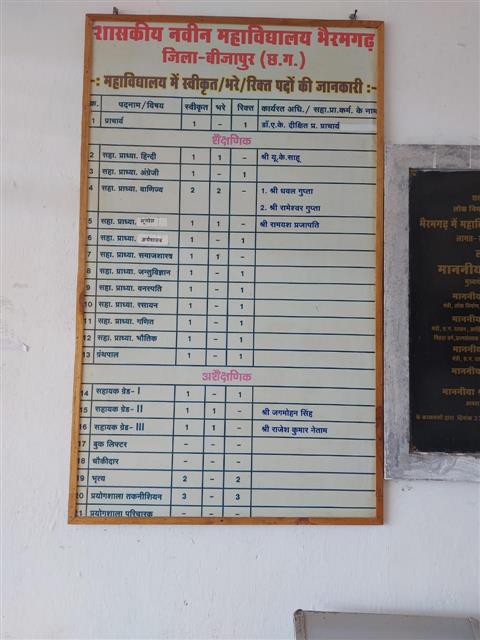 शासकीय नवीन महाविद्यालय भैरमगढ़
जिला-बीजापुर (छ.ग.)
-: महाविद्यालय में स्वीकृत/भरे/रिक्त पदों की जानकारी :-
क्र. पदनाम/विषय स्वीकृत भरे रिक्त कार्यरत अधि./ सहा.प्रा.कर्म. के नाम
1 प्राचार्य 1 - 1 डॉ.ए.के. दीक्षित प्र. प्राचार्य
शैक्षणिक
2 सहा. प्राध्या. हिन्दी 1 1 - श्री यू.के.साहू
3 सहा. प्राध्या. अंग्रेजी 1 - 1
4 सहा. प्राध्या. वाणिज्य 2 2 - 1. श्री धवल गुप्ता
2. श्री रामेश्वर गुप्ता
5 सहा. प्राध्या. भूगोल 1 1 - श्री रामयश प्रजापति
6 सहा. प्राध्या. अर्थशास्त्र 1 - 1
7 सहा. प्राध्या. समाजशास्त्र 1 1 -
8 सहा. प्राध्या. जन्तुविज्ञान 1 - 1
9 सहा. प्राध्या. वनस्पति 1 - 1
10 सहा. प्राध्या. रसायन 1 - 1
11 सहा. प्राध्या. गणित 1 - 1
12 सहा. प्राध्या. भौतिक 1 - 1
13 ग्रंथपाल 1 - 1
अशैक्षणिक
14 सहायक ग्रेड- I 1 - 1
15 सहायक ग्रेड- II 1 1 - श्री जगमोहन सिंह
16 सहायक ग्रेड- III 1 1 - श्री राजेश कुमार नेताम
17 बुक लिफ्टर - - -
18 चौकीदार - - -
19 भृत्य 2 - 2
20 प्रयोगशाला तकनीशियन 3 - 3
21 प्रयोगशाला परिचारक - - -
लोक
भैरमगढ़ में
लागत-
माननीय
माननीय
माननीय
माननीय
माननीय